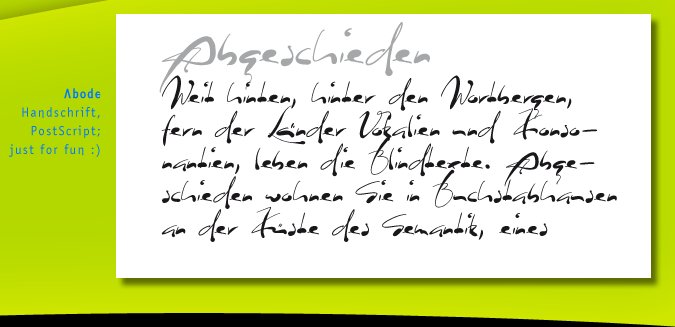 Abode
Handschrift,
PostScript;
just for fun :)
Abgeschieden
Weit hinten, hinter den Wortbergen,
fern der Länder Vokalien und Konso-
nantien, leben die Blindtexte. Abge-
schieden wohnen Sie in Buchstabhausen
an der Küste des Semantik, eines